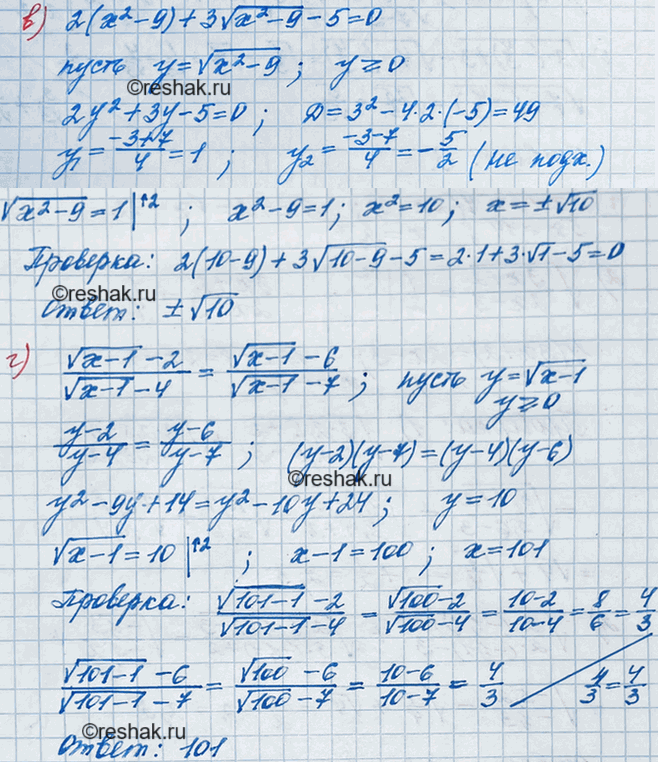 в) 2(x²-9)+3√(x²-9)-5=0
пусть y=√(x²-9); y≥0
©reshak.ru
2y²+3y-5=0; D=3²-4·2·(-5)=49
y₁=(-3+7)/4=1; y₂=(-3-7)/4=-5/2 (не подх.)
√(x²-9)=1|↑2; x²-9=1; x²=10; x=±√10
Проверка: 2(10-9)+3√(10-9)-5=2·1+3·√1-5=0
©reshak.ru
Ответ: ±√10
г) (√(x-1)-2)/(√(x-1)-4)=(√(x-1)-6)/(√(x-1)-7); пусть y=√(x-1)
y≥0
(y-2)/(y-4)=(y-6)/(y-7); (y-2)(y-7)=(y-4)(y-6)
©reshak.ru
y²-9y+14=y²-10y+24; y=10
√(x-1)=10|↑2; x-1=100; x=101
Проверка: (√(101-1)-2)/(√(101-1)-4)=(√100-2)/(√100-4)=(10-2)/(10-4)=8/6=4/3
(√(101-1)-6)/(√(101-1)-7)=(√100-6)/(√100-7)=(10-6)/(10-7)=4/3 4/3=4/3
©reshak.ru
Ответ: 101